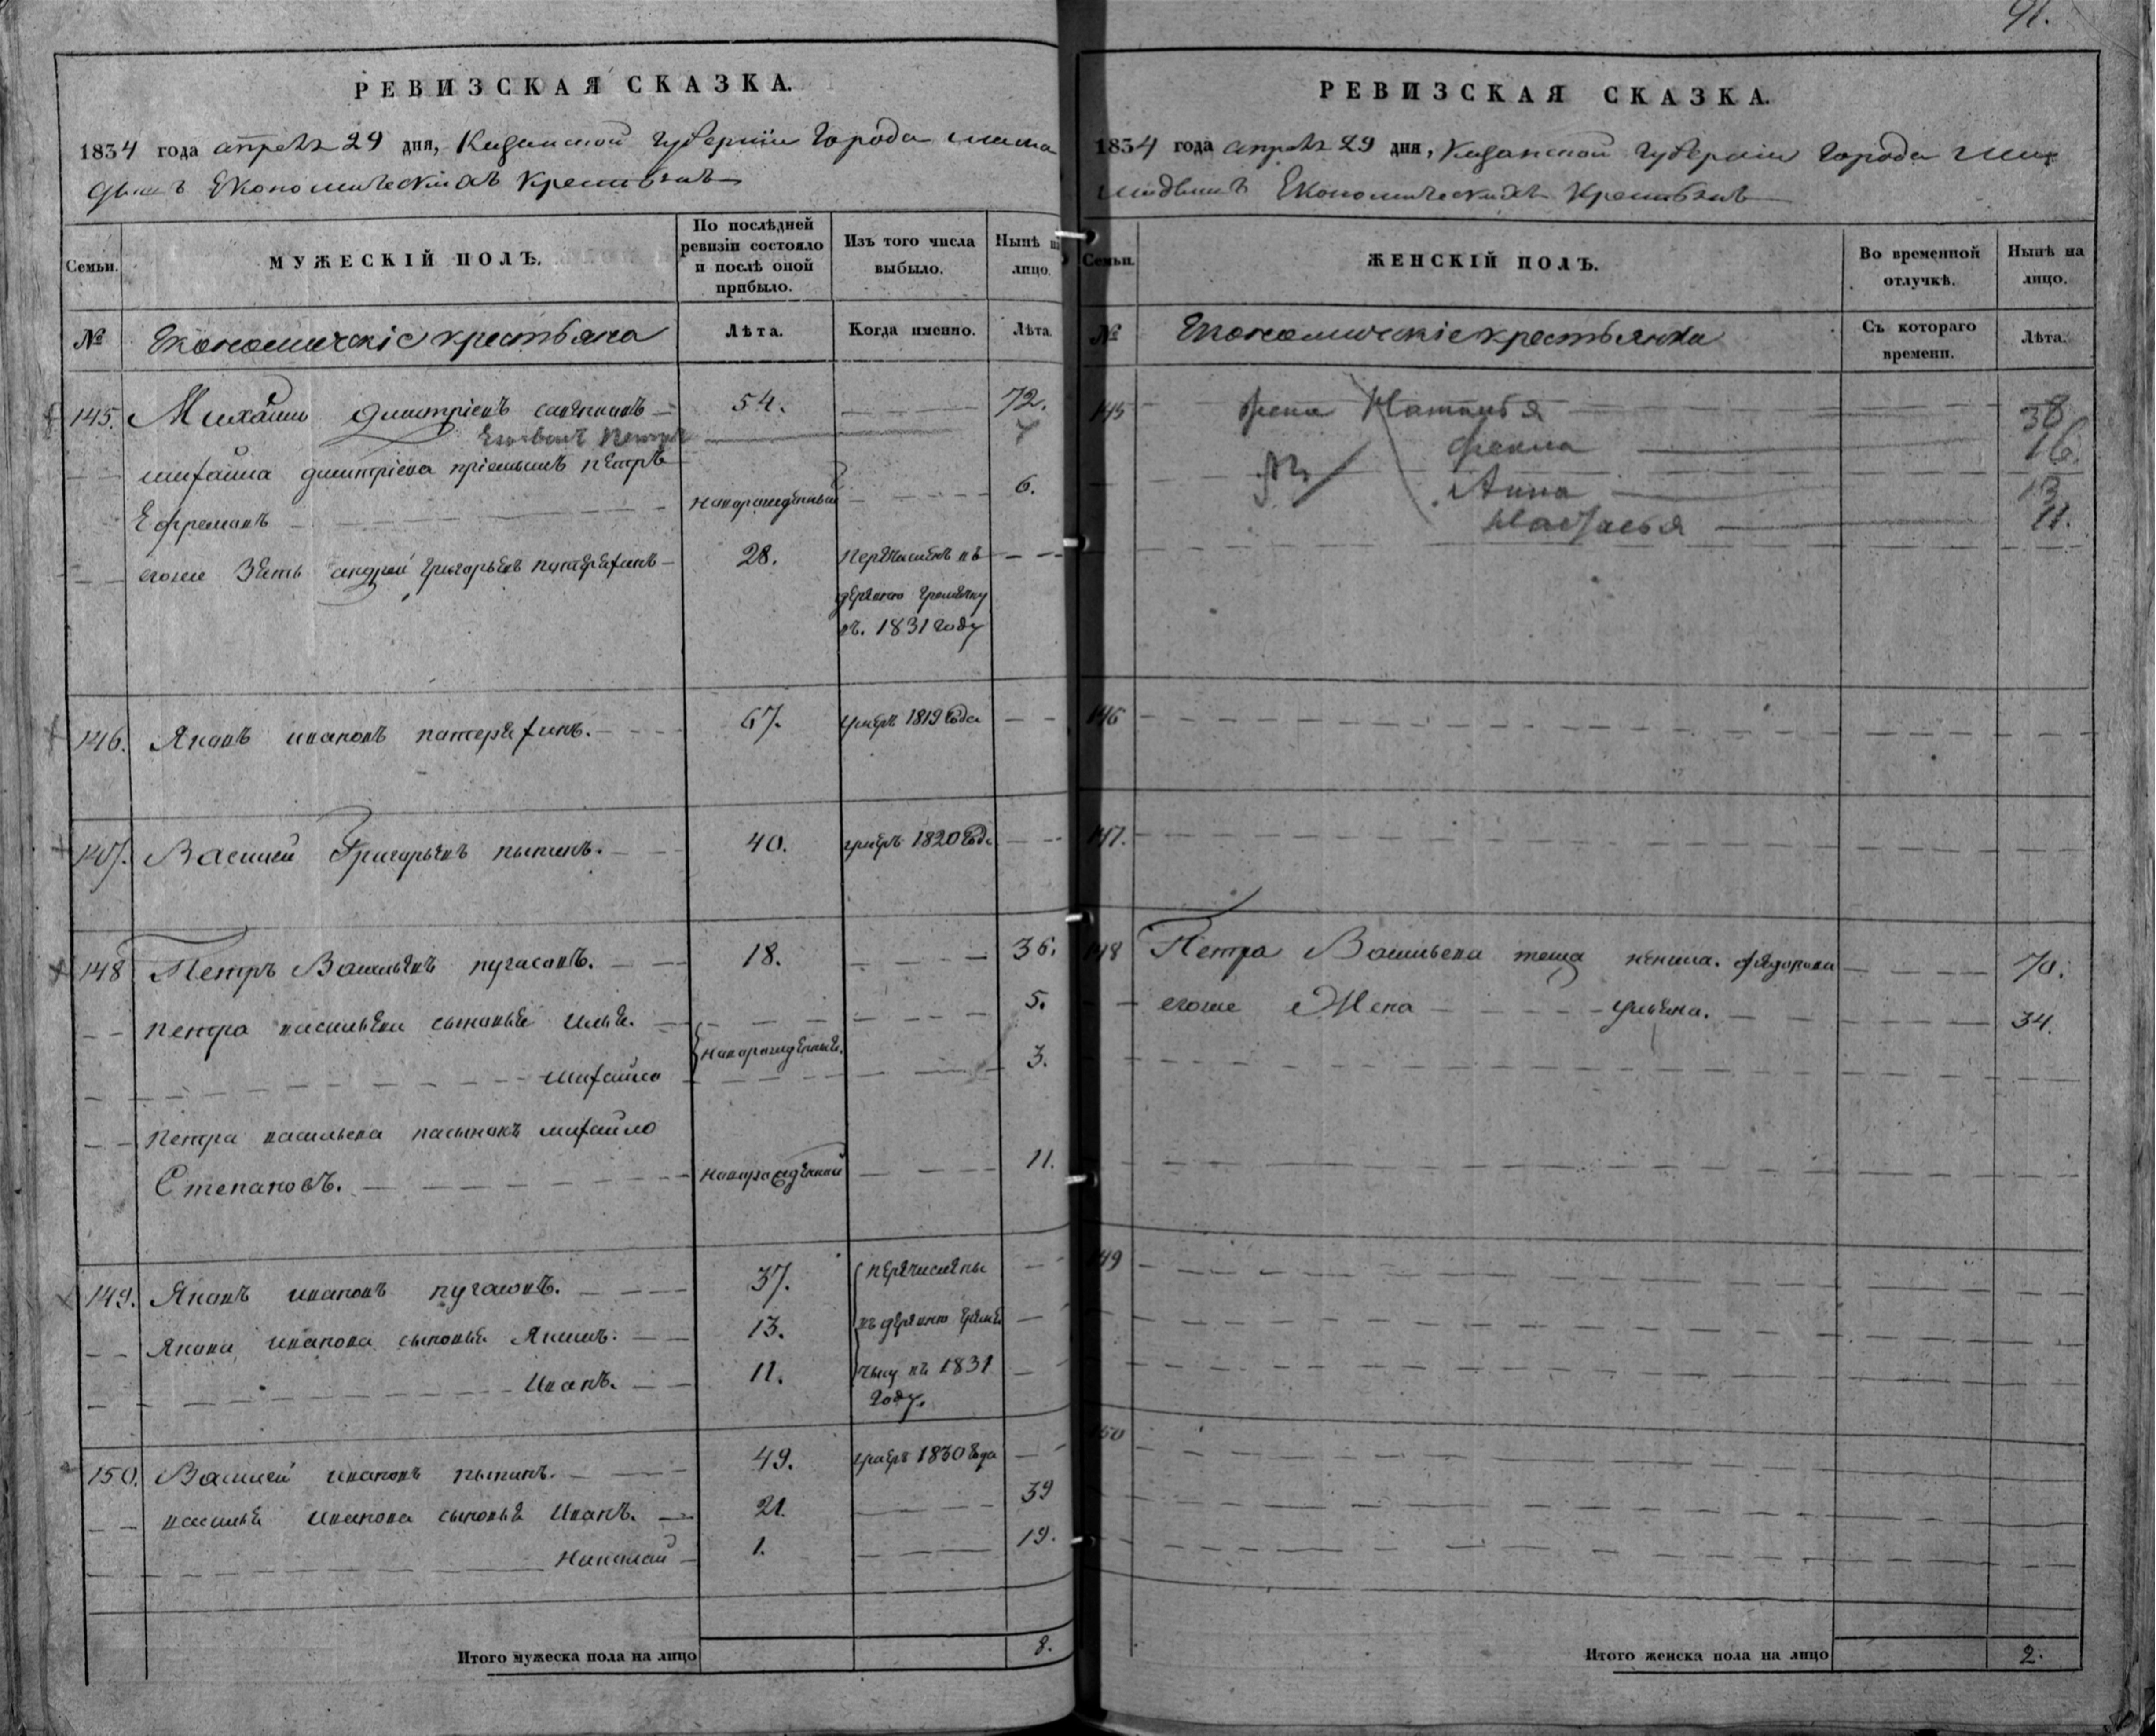 91.
РЕВИЗСКАЯ СКАЗКА.
1834 года апреля 29 дня, Казанской губернiи города
Економическихъ крестьянъ
Семьи.
МУЖЕСКІЙ ПОЛЪ.
По послѣдней ревизіи состояло и послѣ оной прибыло.
Изъ того числа выбыло.
Нынѣ на лицо.
№
Економическiе крестьяна
Лѣта.
Когда именно.
Лѣта.
145. Михайло Дмитрiевъ 54. 72.
7
михайла дмитрiева прiемышъ петръ
Ефремовъ новорожденный 6.
егоже Зять андрей григорьевъ 28. перечисленъ въ
деревню гремячку
въ. 1831 году
146. Яковъ ивановъ 67. умеръ 1819 года
147. Василей Григорьевъ пыпинъ. 40. умеръ 1820 года
148 Петръ Васильевъ пугасовъ. 18. 36.
петра васильева сыновья илья. 5.
новорожденные.
михайло 3.
петра васильева пасынокъ михайло
Степановъ. новорожденной 11.
149. Яковъ ивановъ пугасовъ. 37. перечислены
Якова иванова сыновья Якимъ. 13. въ деревню гремя
Иванъ. 11. чьку въ 1831
году.
150. Василей ивановъ пыпинъ. 49. умеръ 1830 года
василья иванова сыновья Иванъ. 21. 39
Николай 1. 19.
Итого мужеска пола на лицо 8.
РЕВИЗСКАЯ СКАЗКА.
1834 года апреля 29 дня, Казанской губернiи города
Економическихъ крестьянъ
Семьи.
ЖЕНСКІЙ ПОЛЪ.
Во временной отлучкѣ.
Нынѣ на лицо.
№
Економическiе крестьянки
Съ котораго времени.
Лѣта.
145 38
Фекла 16.
Анна 13
Настасья 11.
146
147.
148 Петра Васильева теща ненила. федорова 70.
егоже Жена ульяна. 34.
149
150
Итого женска пола на лицо 2.